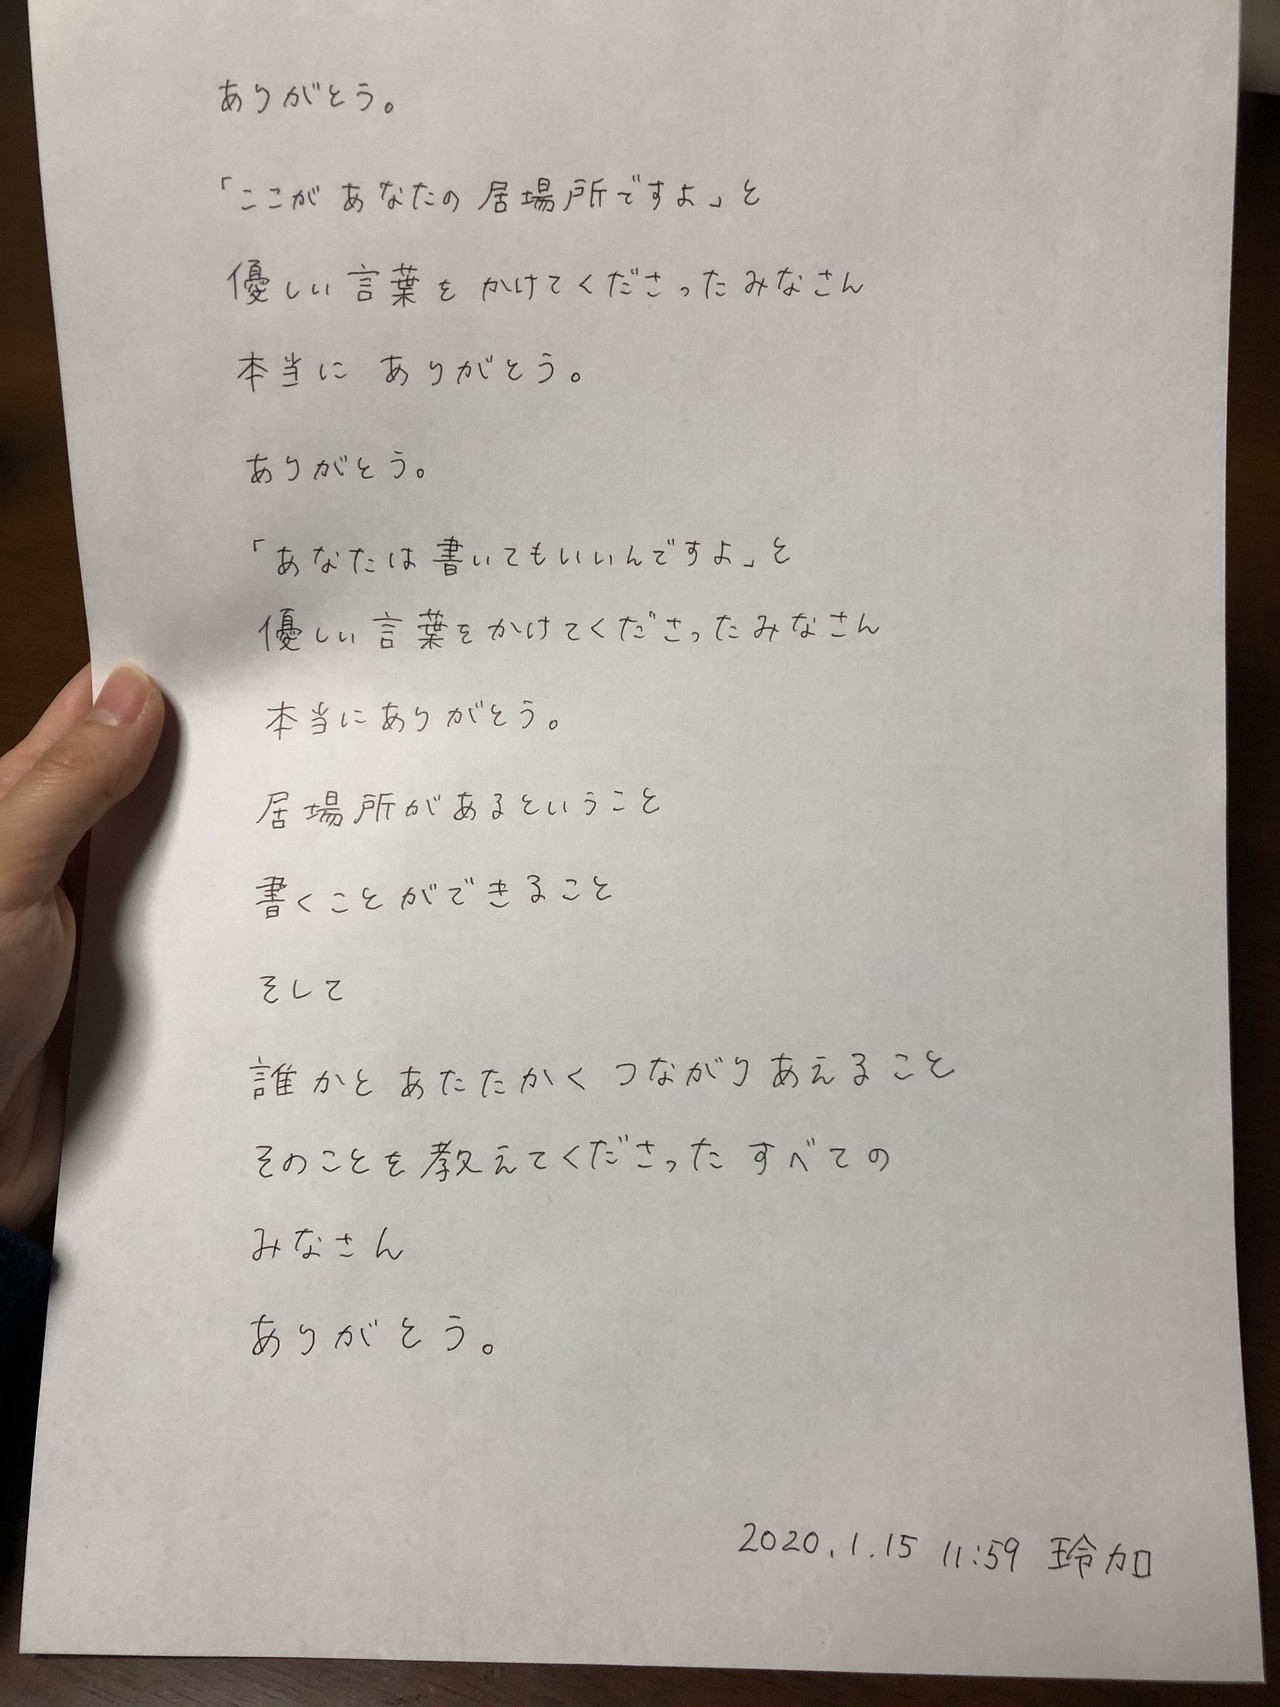 ありがとう。
「ここが あなたの 居場所ですよ」と
優しい 言葉を かけてくださった みなさん
本当に ありがとう。
ありがとう。
「あなたは 書いてもいいんですよ」と
優しい 言葉をかけてくださったみなさん
本当にありがとう。
居場所があるということ
書くことができること
そして
誰かと あたたかく つながりあえること
そのことを 教えてくださった すべての
みなさん
ありがとう。
2020.1.15 11:59 玲加